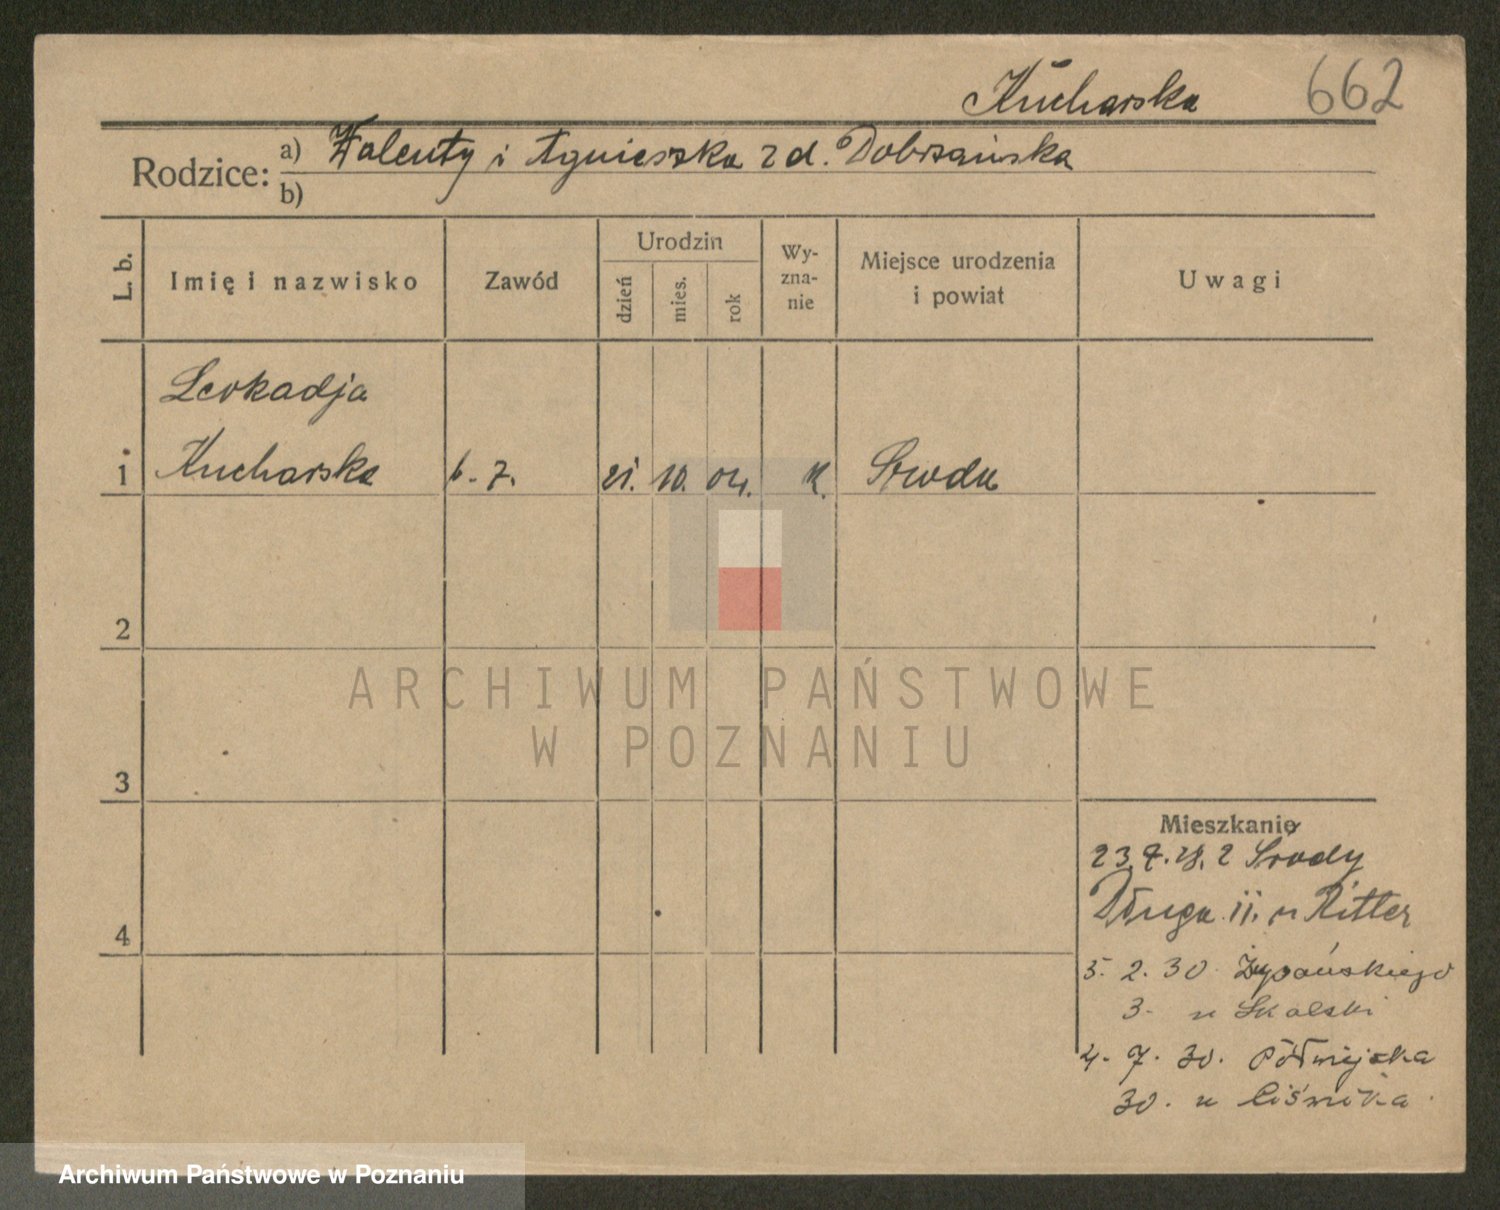 Kucharska 662
Rodzice: a) Walenty i Agnieszka z d. Dobrzańska
b)
L. b. Imię i nazwisko Zawód Urodzin dzień mies. rok Wyznanie Miejsce urodzenia i powiat Uwagi
Leokadja
1 Kucharska b. z. 21. 10. 04. k. Środa
2
ARCHIWUM PAŃSTWOWE
W POZNANIU
3
Mieszkanie
23.7.28. z Środy
Długa 11. u Ritter
4
5. 2. 30
3. u Skalski
4. 7. 30. Półwiejska
30. u
Archiwum Państwowe w Poznaniu